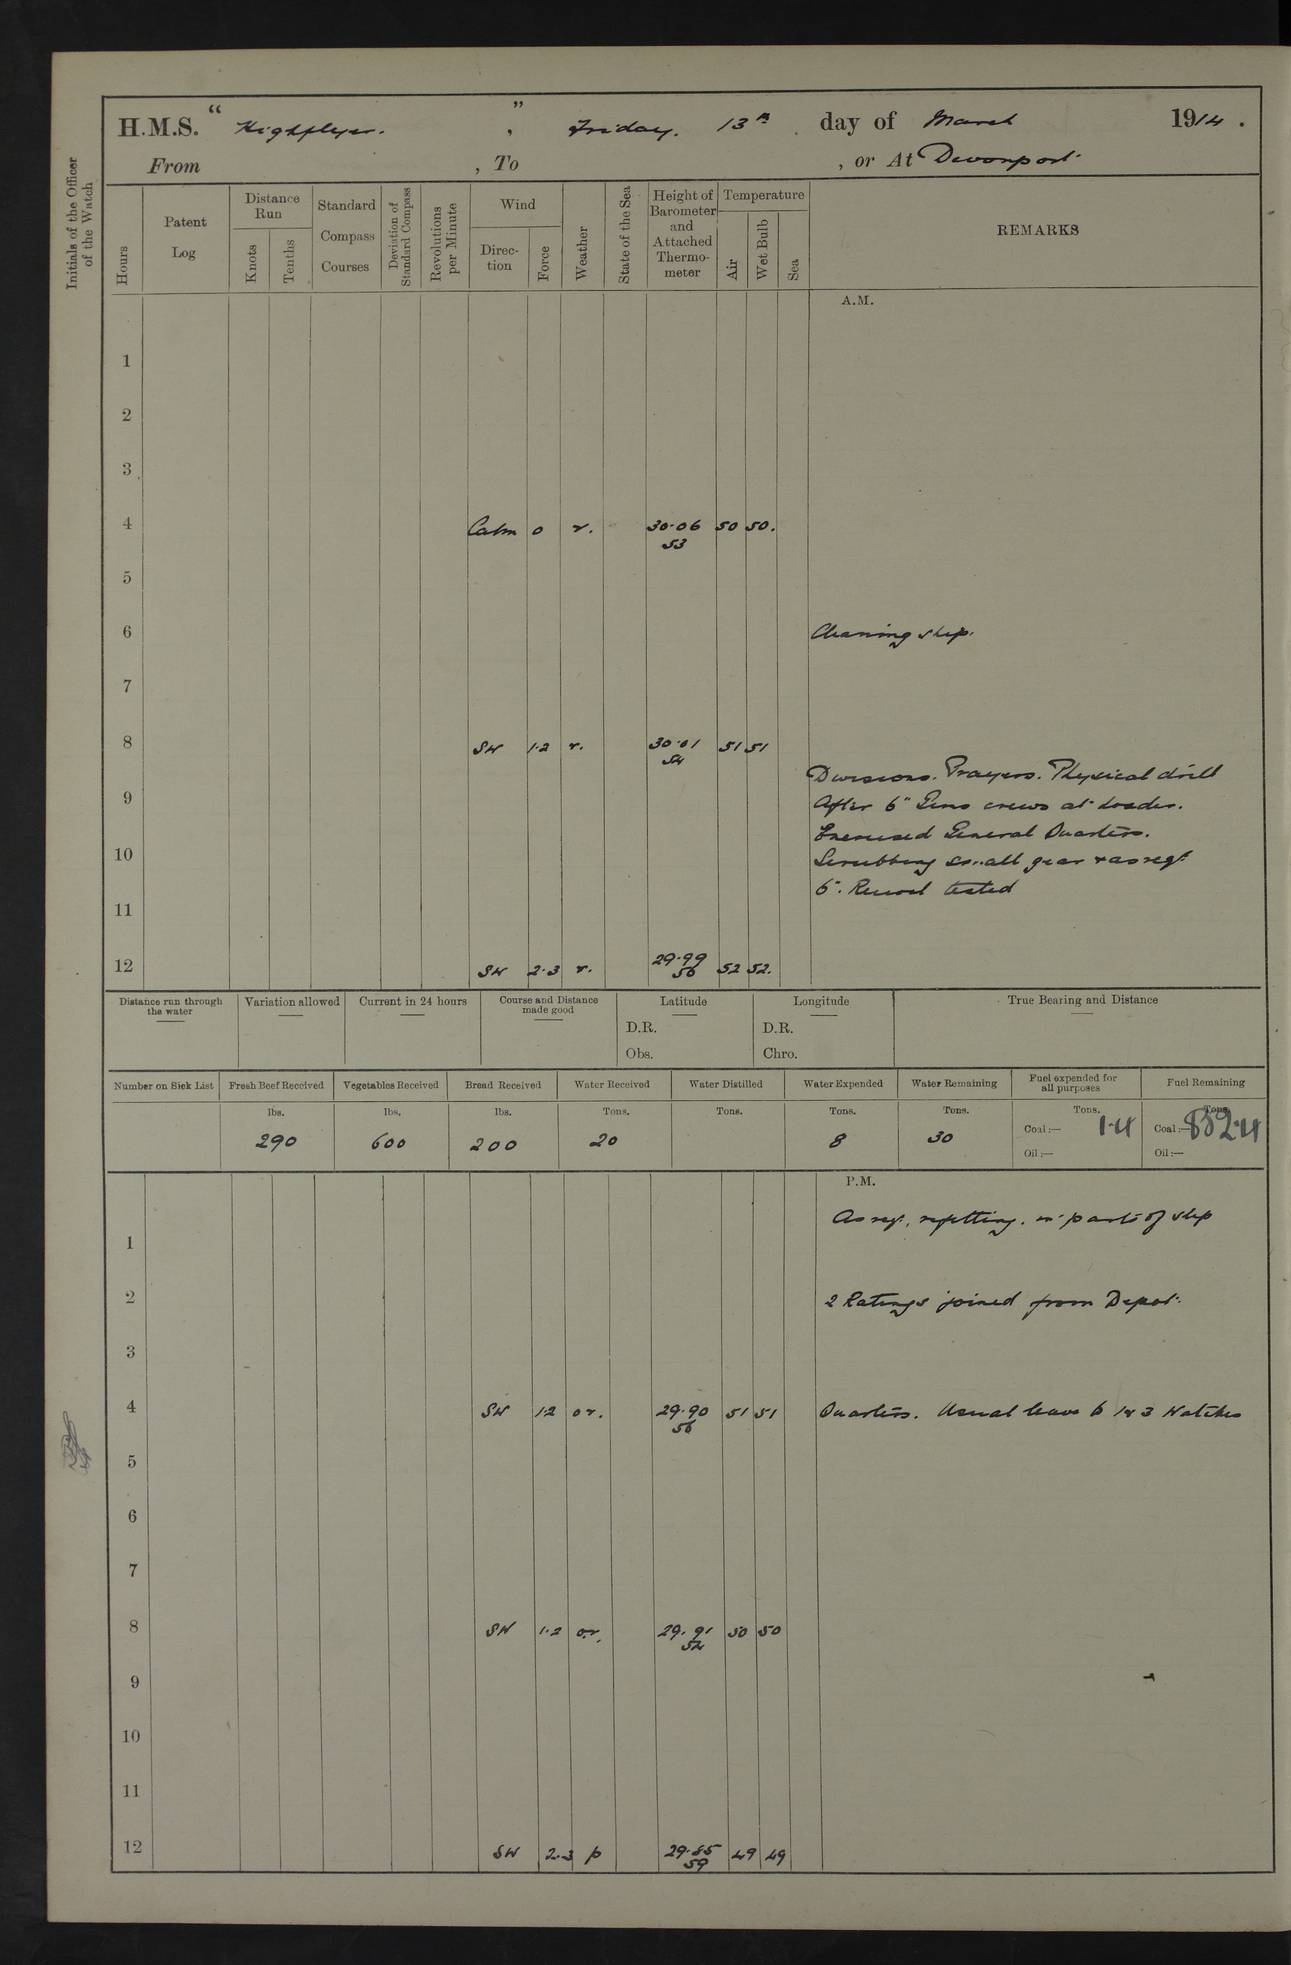 H.M.S. "Highflyer.", Friday. 13th day of March 1914.
From , To , or At Devonport
Initials of the Officer of the Watch
Hours
Patent Log
Distance Run
Knots
Tenths
Standard Compass Courses
Deviation of Standard Compass
Revolutions per Minute
Wind
Direction
Force
Weather
State of the Sea
Height of Barometer and Attached Thermometer
Temperature
Air
Wet Bulb
Sea
REMARKS
A.M.
1
2
3
4 Calm 0 r. 30.06 50 50.
53
5
6 Cleaning ship.
7
8 SW 1.2 r. 30.01 51 51
54
Divisions. Prayers. Physical drill
9 After 6" Guns crews at loader.
Exercised General Quarters.
10 Scrubbing small gear & as reqt
6". Recoil tested
11
12 SW 2.3 r. 29.99 52 52.
56
Distance run through the water
Variation allowed
Current in 24 hours
Course and Distance made good
Latitude
D.R.
Obs.
Longitude
D.R.
Chro.
True Bearing and Distance
Number on Sick List
Fresh Beef Received lbs. 290
Vegetables Received lbs. 600
Bread Received lbs. 200
Water Received Tons. 20
Water Distilled Tons.
Water Expended Tons. 8
Water Remaining Tons. 30
Fuel expended for all purposes Tons.
Coal:— 1.4
Oil:—
Fuel Remaining Tons.
Coal:— 852.4
Oil:—
P.M.
As reqt, refitting. in parts of ship
1
2 2 Ratings joined from Depot.
3
4 SW 1.2 or. 29.90 51 51 Quarters. Usual leave to 1 & 3 Watches
56
5
6
7
8 SW 1.2 o.r. 29.91 50 50
52
9
10
11
12 SW 2.3 p 29.85 49 49
59